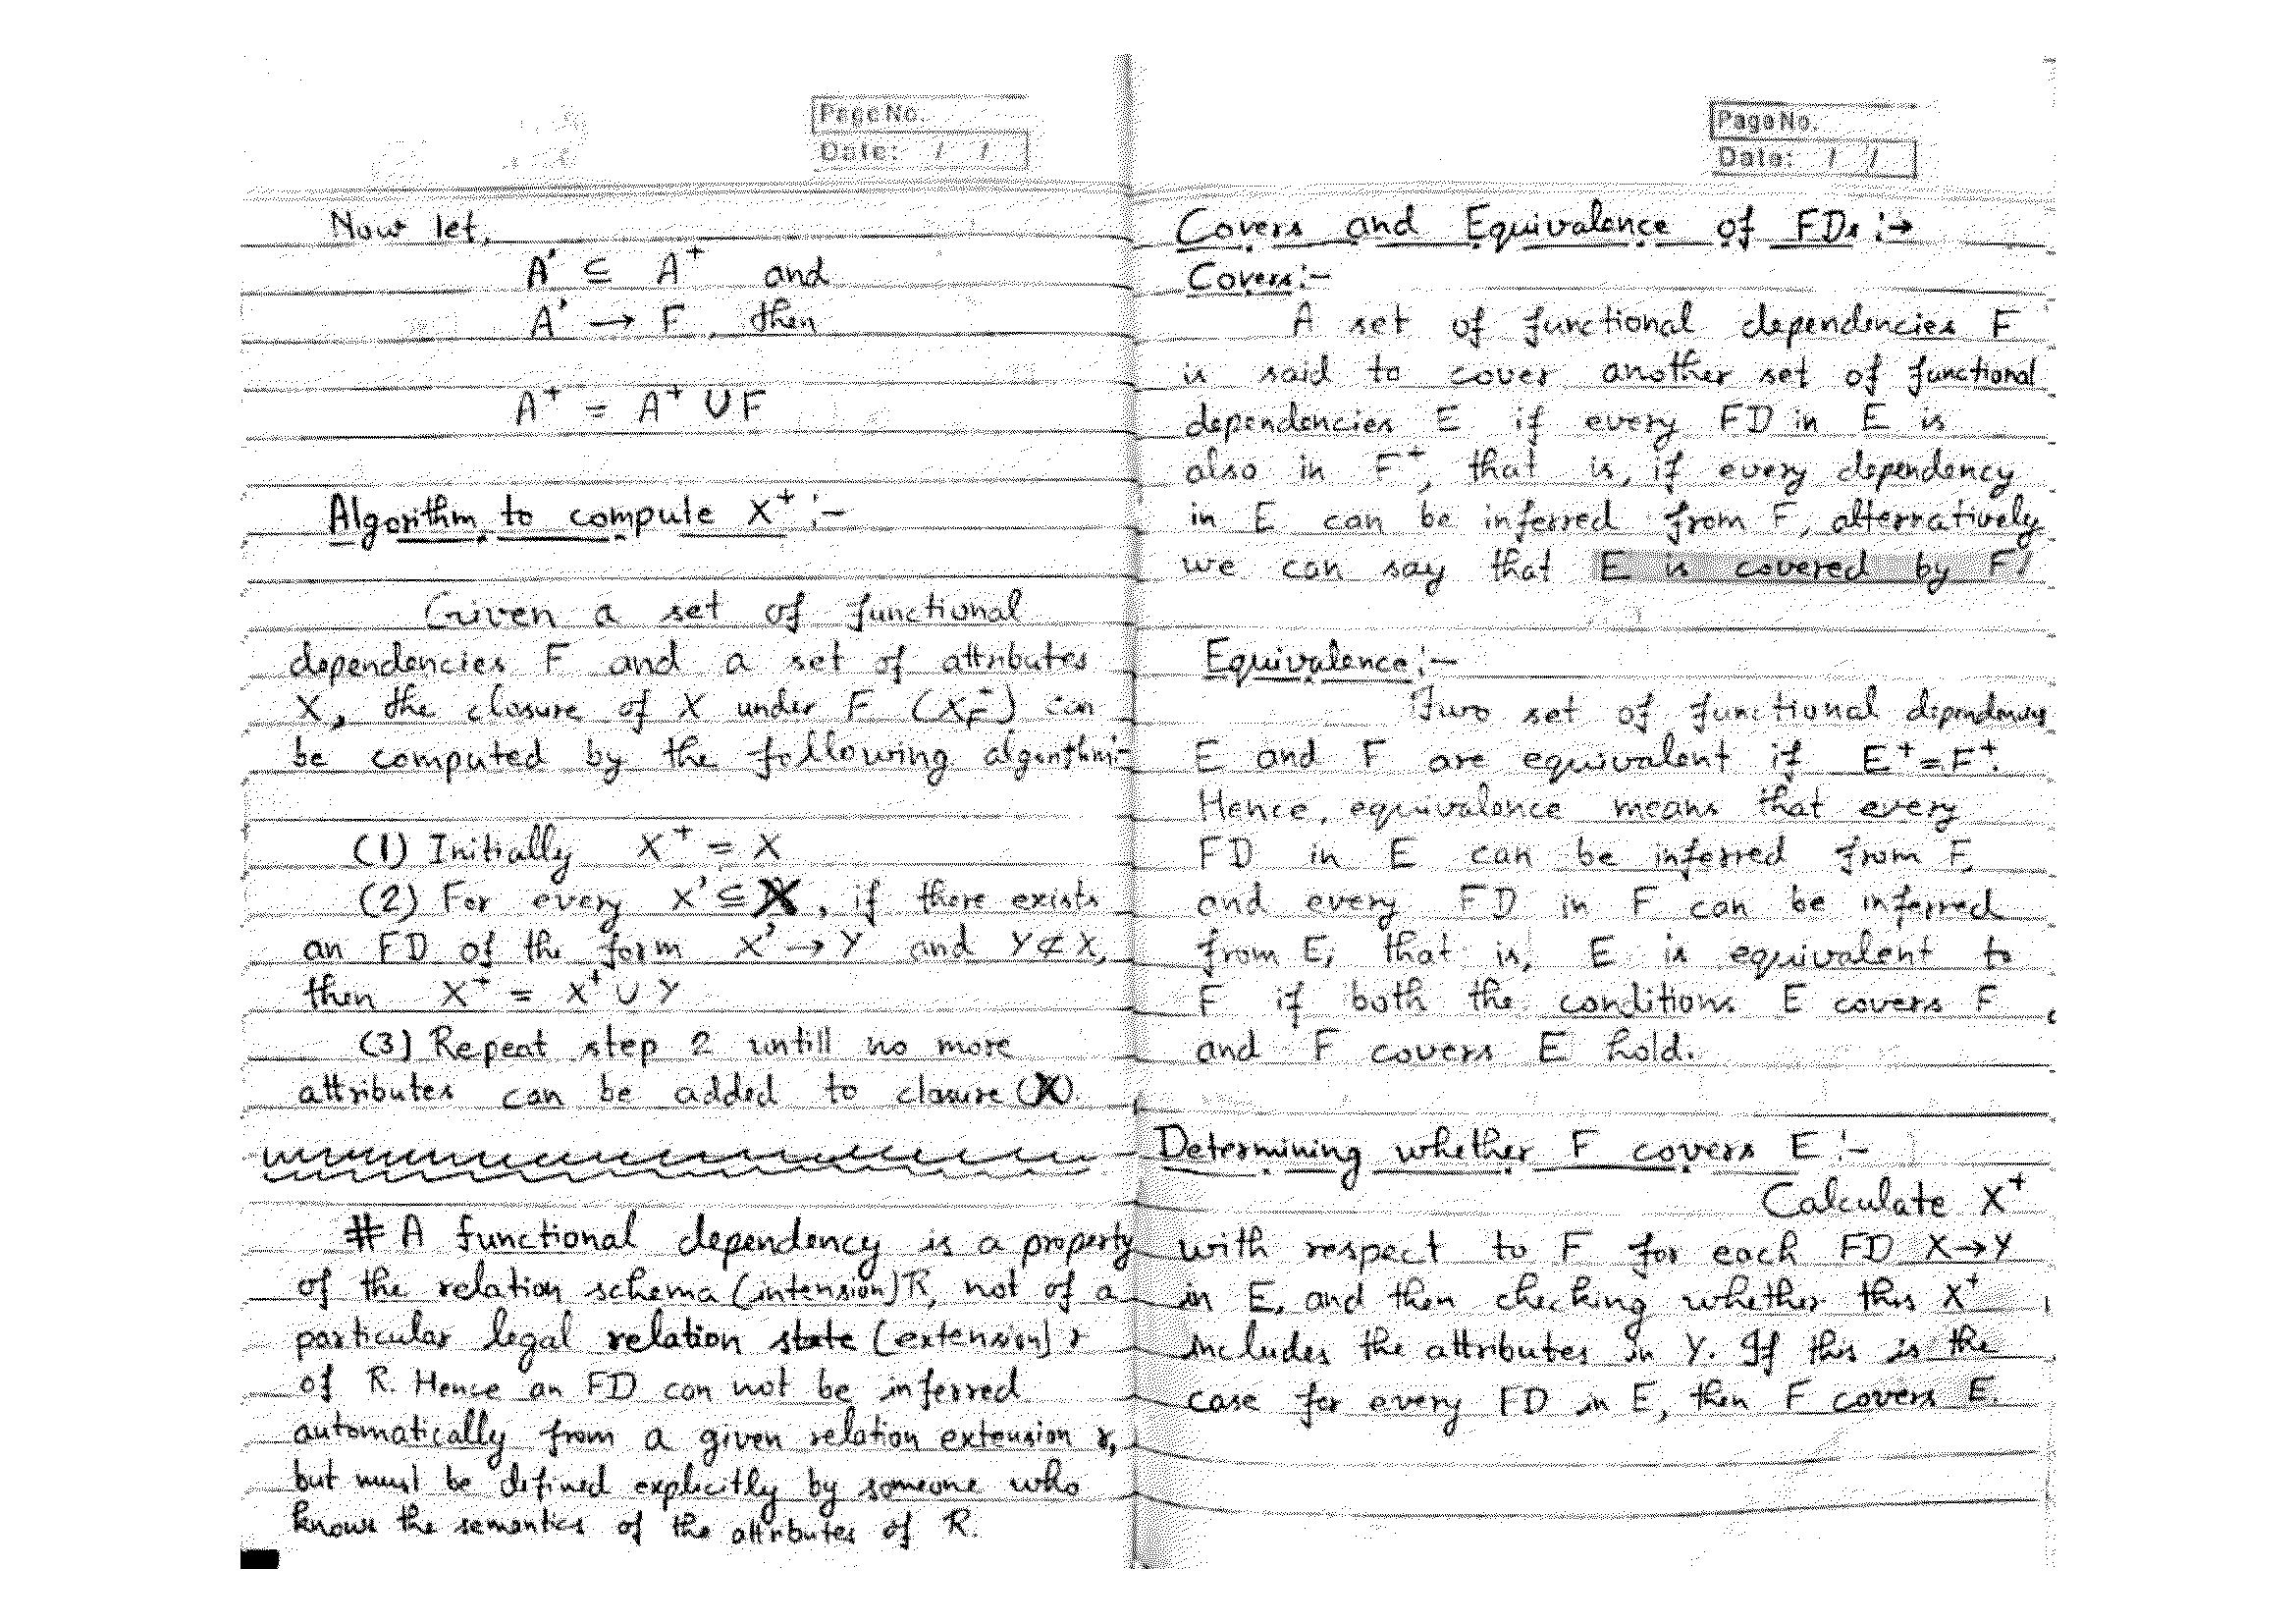 Page No.
Date: / /
Now let,
A' ⊆ A⁺ and
A' → F, then
A⁺ = A⁺ ∪ F
Algorithm to compute X⁺ :-
Given a set of functional
dependencies F and a set of attributes
X, the closure of X under F (X_F⁺) can
be computed by the following algorithm:-
(1) Initially X⁺ = X
(2) For every X' ⊆ X, if there exists
an FD of the form X' → Y and Y ⊄ X,
then X⁺ = X⁺ ∪ Y
(3) Repeat step 2 untill no more
attributes can be added to closure (X).
# A functional dependency is a property
of the relation schema (intension) R, not of a
particular legal relation state (extension) r
of R. Hence an FD can not be inferred
automatically from a given relation extension r,
but must be defined explicitly by someone who
knows the semantics of the attributes of R.
Page No.
Date: / /
Covers and Equivalence of FDs :→
Covers:-
A set of functional dependencies F
is said to cover another set of functional
dependencies E if every FD in E is
also in F⁺, that is, if every dependency
in E can be inferred from F, alternatively
we can say that E is covered by F/
Equivalence:-
Two set of functional dependencies
E and F are equivalent if E⁺ = F⁺.
Hence, equivalence means that every
FD in E can be inferred from F,
and every FD in F can be inferred
from E; that is, E is equivalent to
F if both the conditions E covers F
and F covers E hold.
Determining whether F covers E :-
Calculate X⁺
with respect to F for each FD X→Y
in E, and then checking whether this X⁺
includes the attributes in Y. If this is the
case for every FD in E, then F covers E.